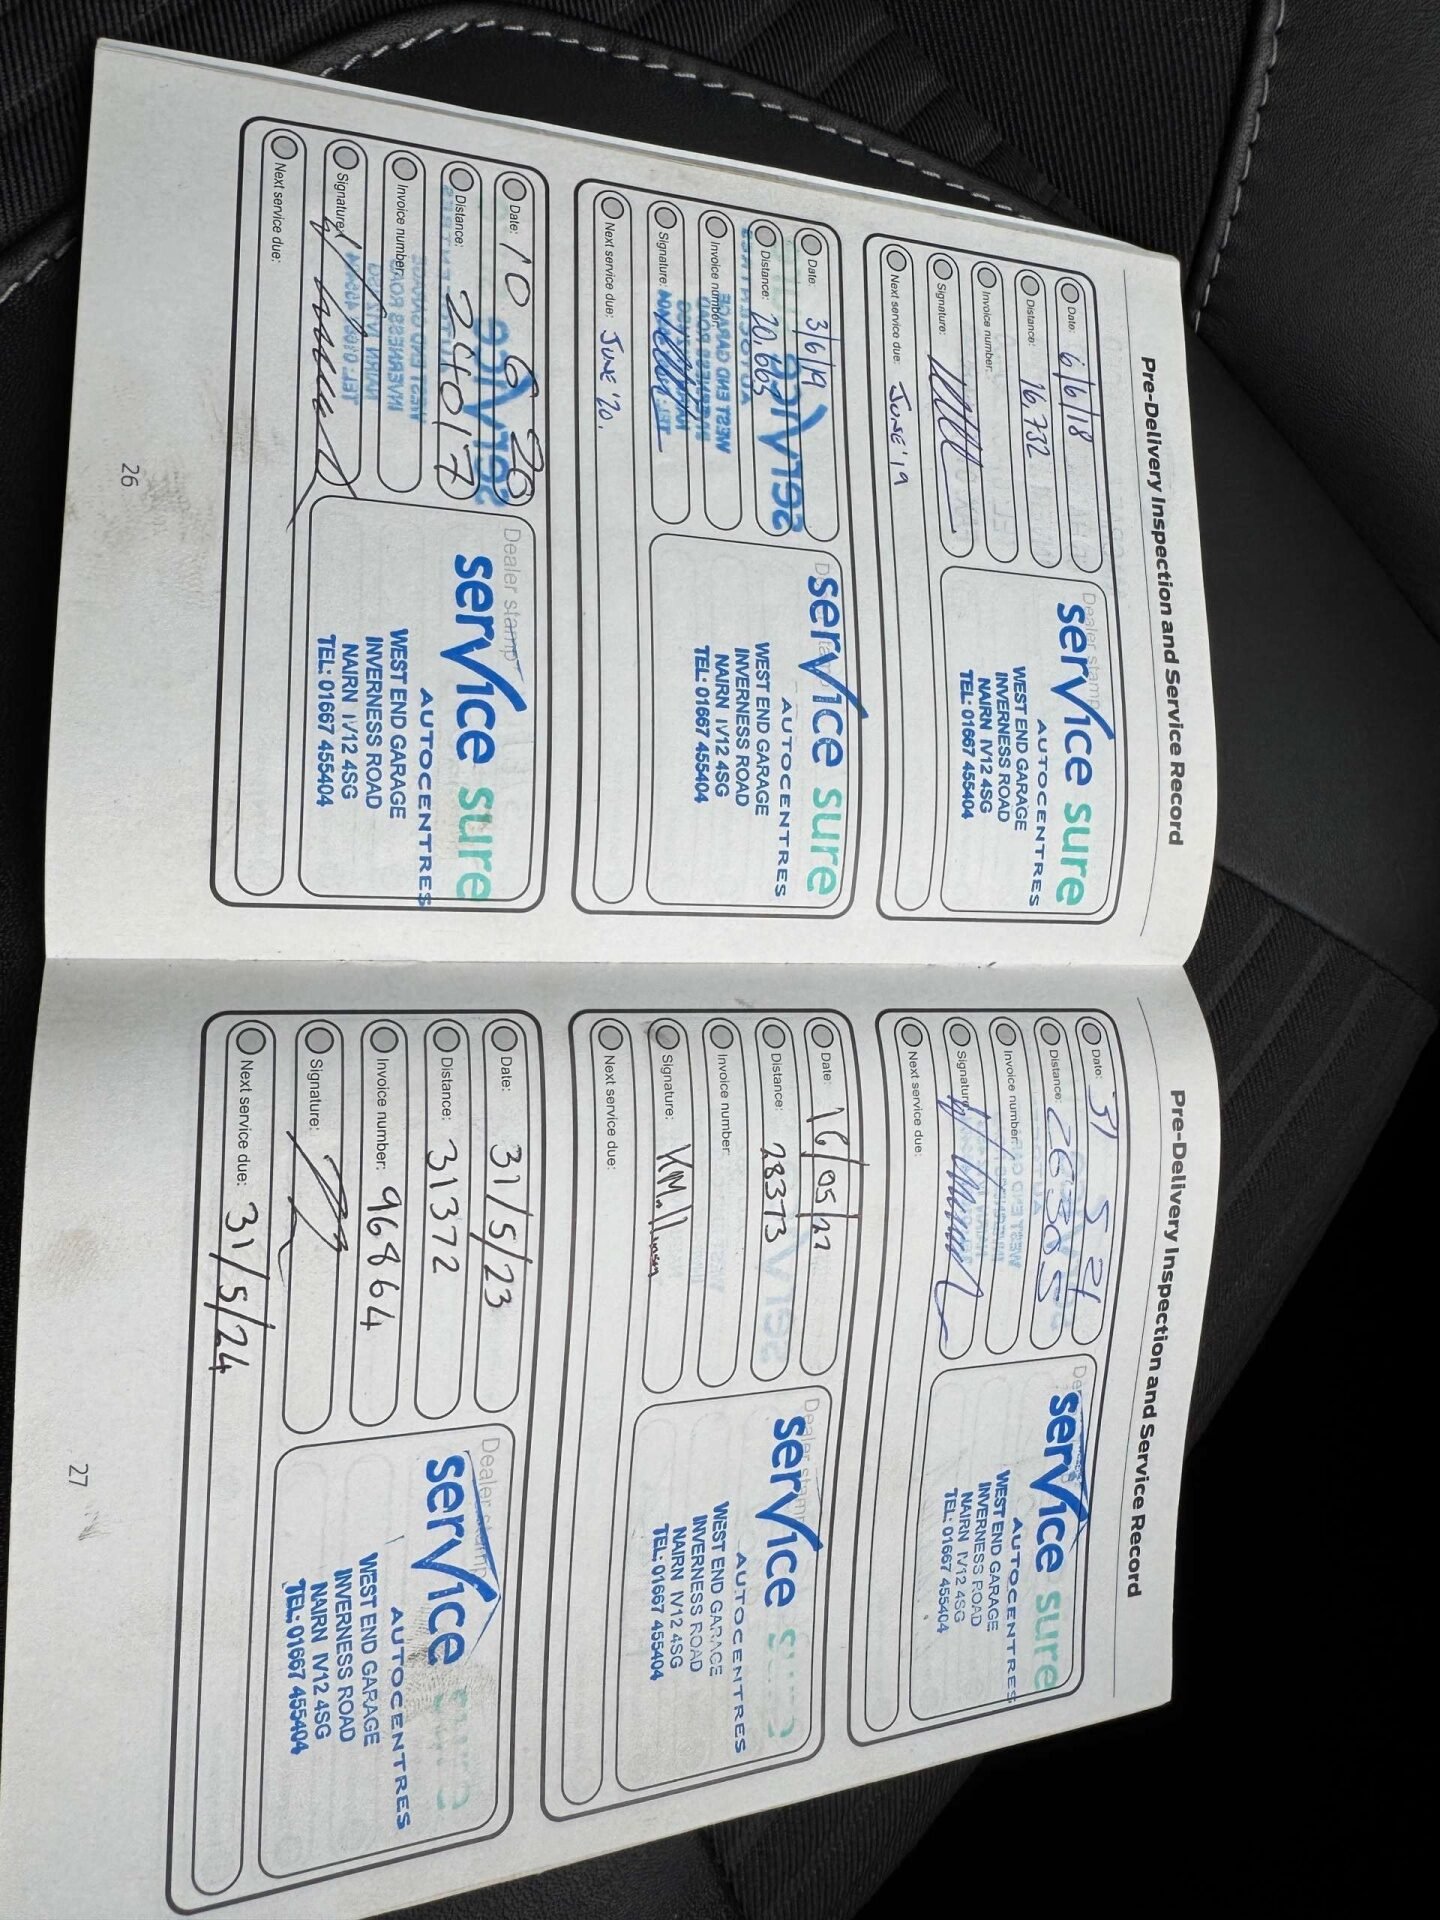 Pre-Delivery Inspection and Service Record
Date: 6/6/18
Distance: 16.732
Invoice number:
Signature:
Next service due: JUNE '19
Dealer stamp
service sure
AUTOCENTRES
WEST END GARAGE
INVERNESS ROAD
NAIRN IV12 4SG
TEL: 01667 455404
Date: 3/6/19
Distance: 20.663
Invoice number:
Signature:
Next service due: JUNE '20.
service sure
AUTOCENTRES
WEST END GARAGE
INVERNESS ROAD
NAIRN IV12 4SG
TEL: 01667 455404
Date: 10 6 20
Distance: 24017
Invoice number:
Signature:
Next service due:
Dealer stamp
service sure
AUTOCENTRES
WEST END GARAGE
INVERNESS ROAD
NAIRN IV12 4SG
TEL: 01667 455404
26
Pre-Delivery Inspection and Service Record
Date: 31 5 21
Distance:
Invoice number:
Signature:
Next service due:
service sure
AUTOCENTRES
WEST END GARAGE
INVERNESS ROAD
NAIRN IV12 4SG
TEL: 01667 455404
Date: 16/05/22
Distance: 28373
Invoice number:
Signature:
Next service due:
Dealer stamp
service sure
AUTOCENTRES
WEST END GARAGE
INVERNESS ROAD
NAIRN IV12 4SG
TEL: 01667 455404
Date: 31/5/23
Distance: 31372
Invoice number: 96864
Signature:
Next service due: 31/5/24
Dealer stamp
service sure
AUTOCENTRES
WEST END GARAGE
INVERNESS ROAD
NAIRN IV12 4SG
TEL: 01667 455404
27